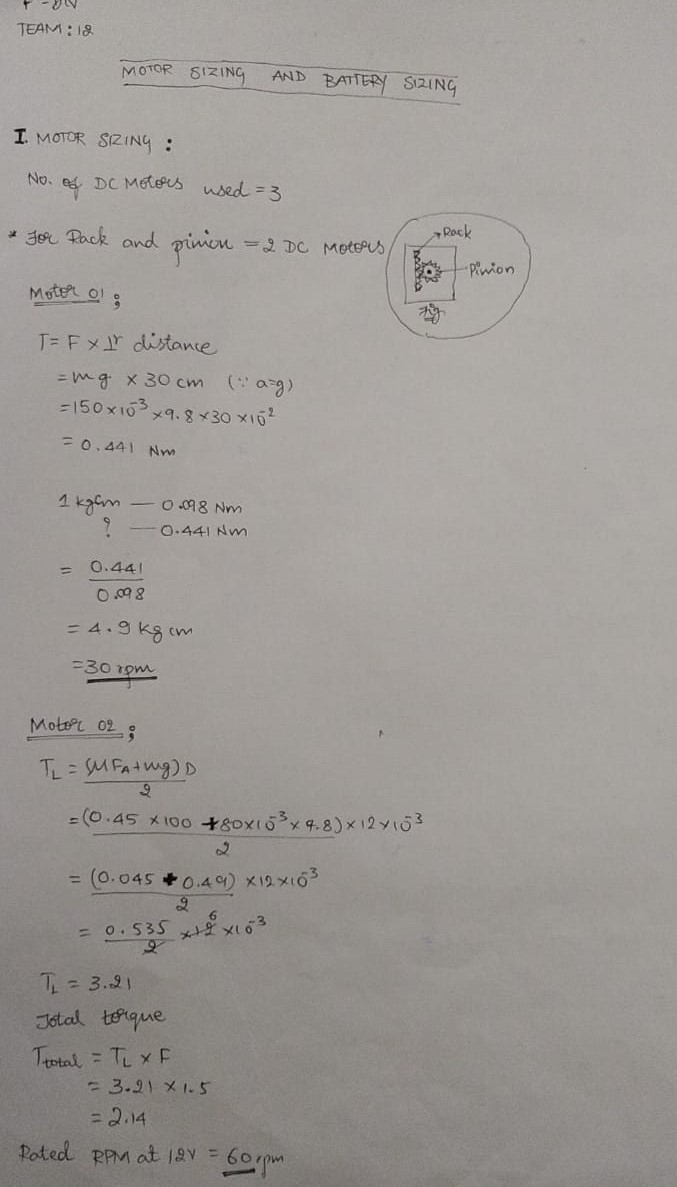 TEAM : 12
MOTOR SIZING AND BATTERY SIZING
I. MOTOR SIZING :
No. of DC Motors used = 3
* For Rack and pinion = 2 DC Motors
Rack
Pinion
Fig
Motor 01 ;
T = F × ⊥r distance
= mg × 30 cm (∵ a=g)
= 150×10⁻³ ×9.8×30×10⁻²
= 0.441 Nm
1 kgcm — 0.098 Nm
? — 0.441 Nm
= 0.441
0.098
= 4.9 kg cm
= 30 rpm
Motor 02 ;
TL = (μFA+mg) D
2
= (0.45 ×100 +80×10⁻³×9.8)×12×10⁻³
2
= (0.045 + 0.49) ×12×10⁻³
2
6
= 0.535 ×12 ×10⁻³
2
TL = 3.21
Total torque
Ttotal = TL × F
= 3.21 × 1.5
= 2.14
Rated RPM at 12V = 60 rpm